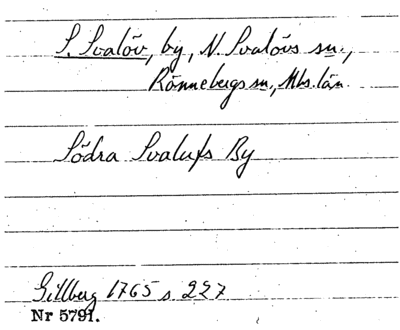 S. Svalöv, by, N. Svalövs sn.,
Rönnebergs sn., Mhs. län.
Södra Svalufs By
Gillberg 1765 s. 227
Nr 5791.